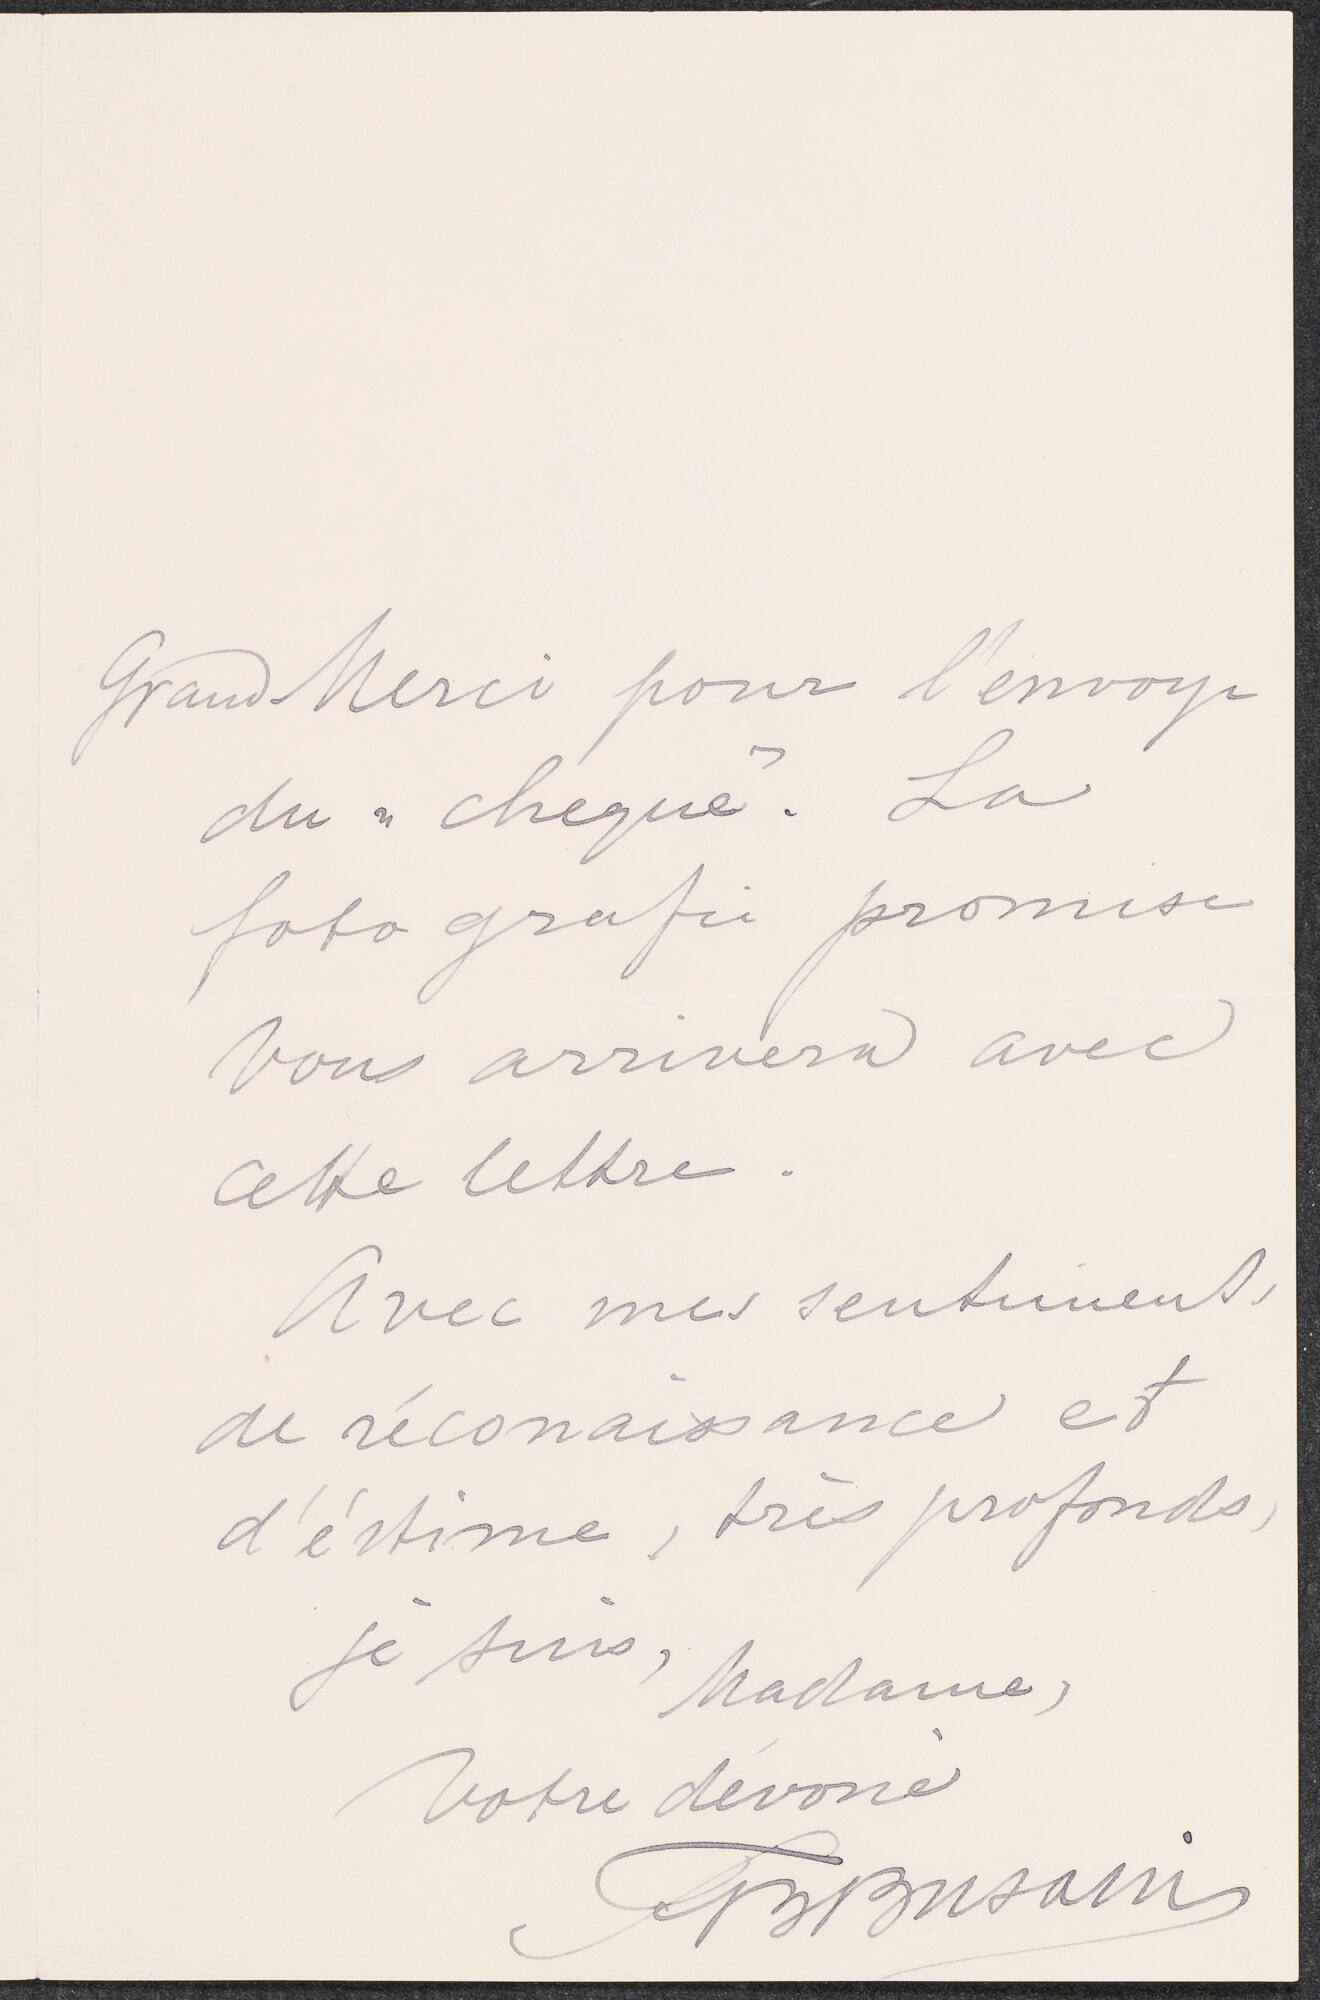 Grand Merci pour l'envoye
du „cheque". La
fotografie promise
vous arrivera avec
cette lettre.
Avec mes sentiments
de réconaissance et
d'éstime, très profonds,
je suis, Madame,
votre dévoué
FBBusoni